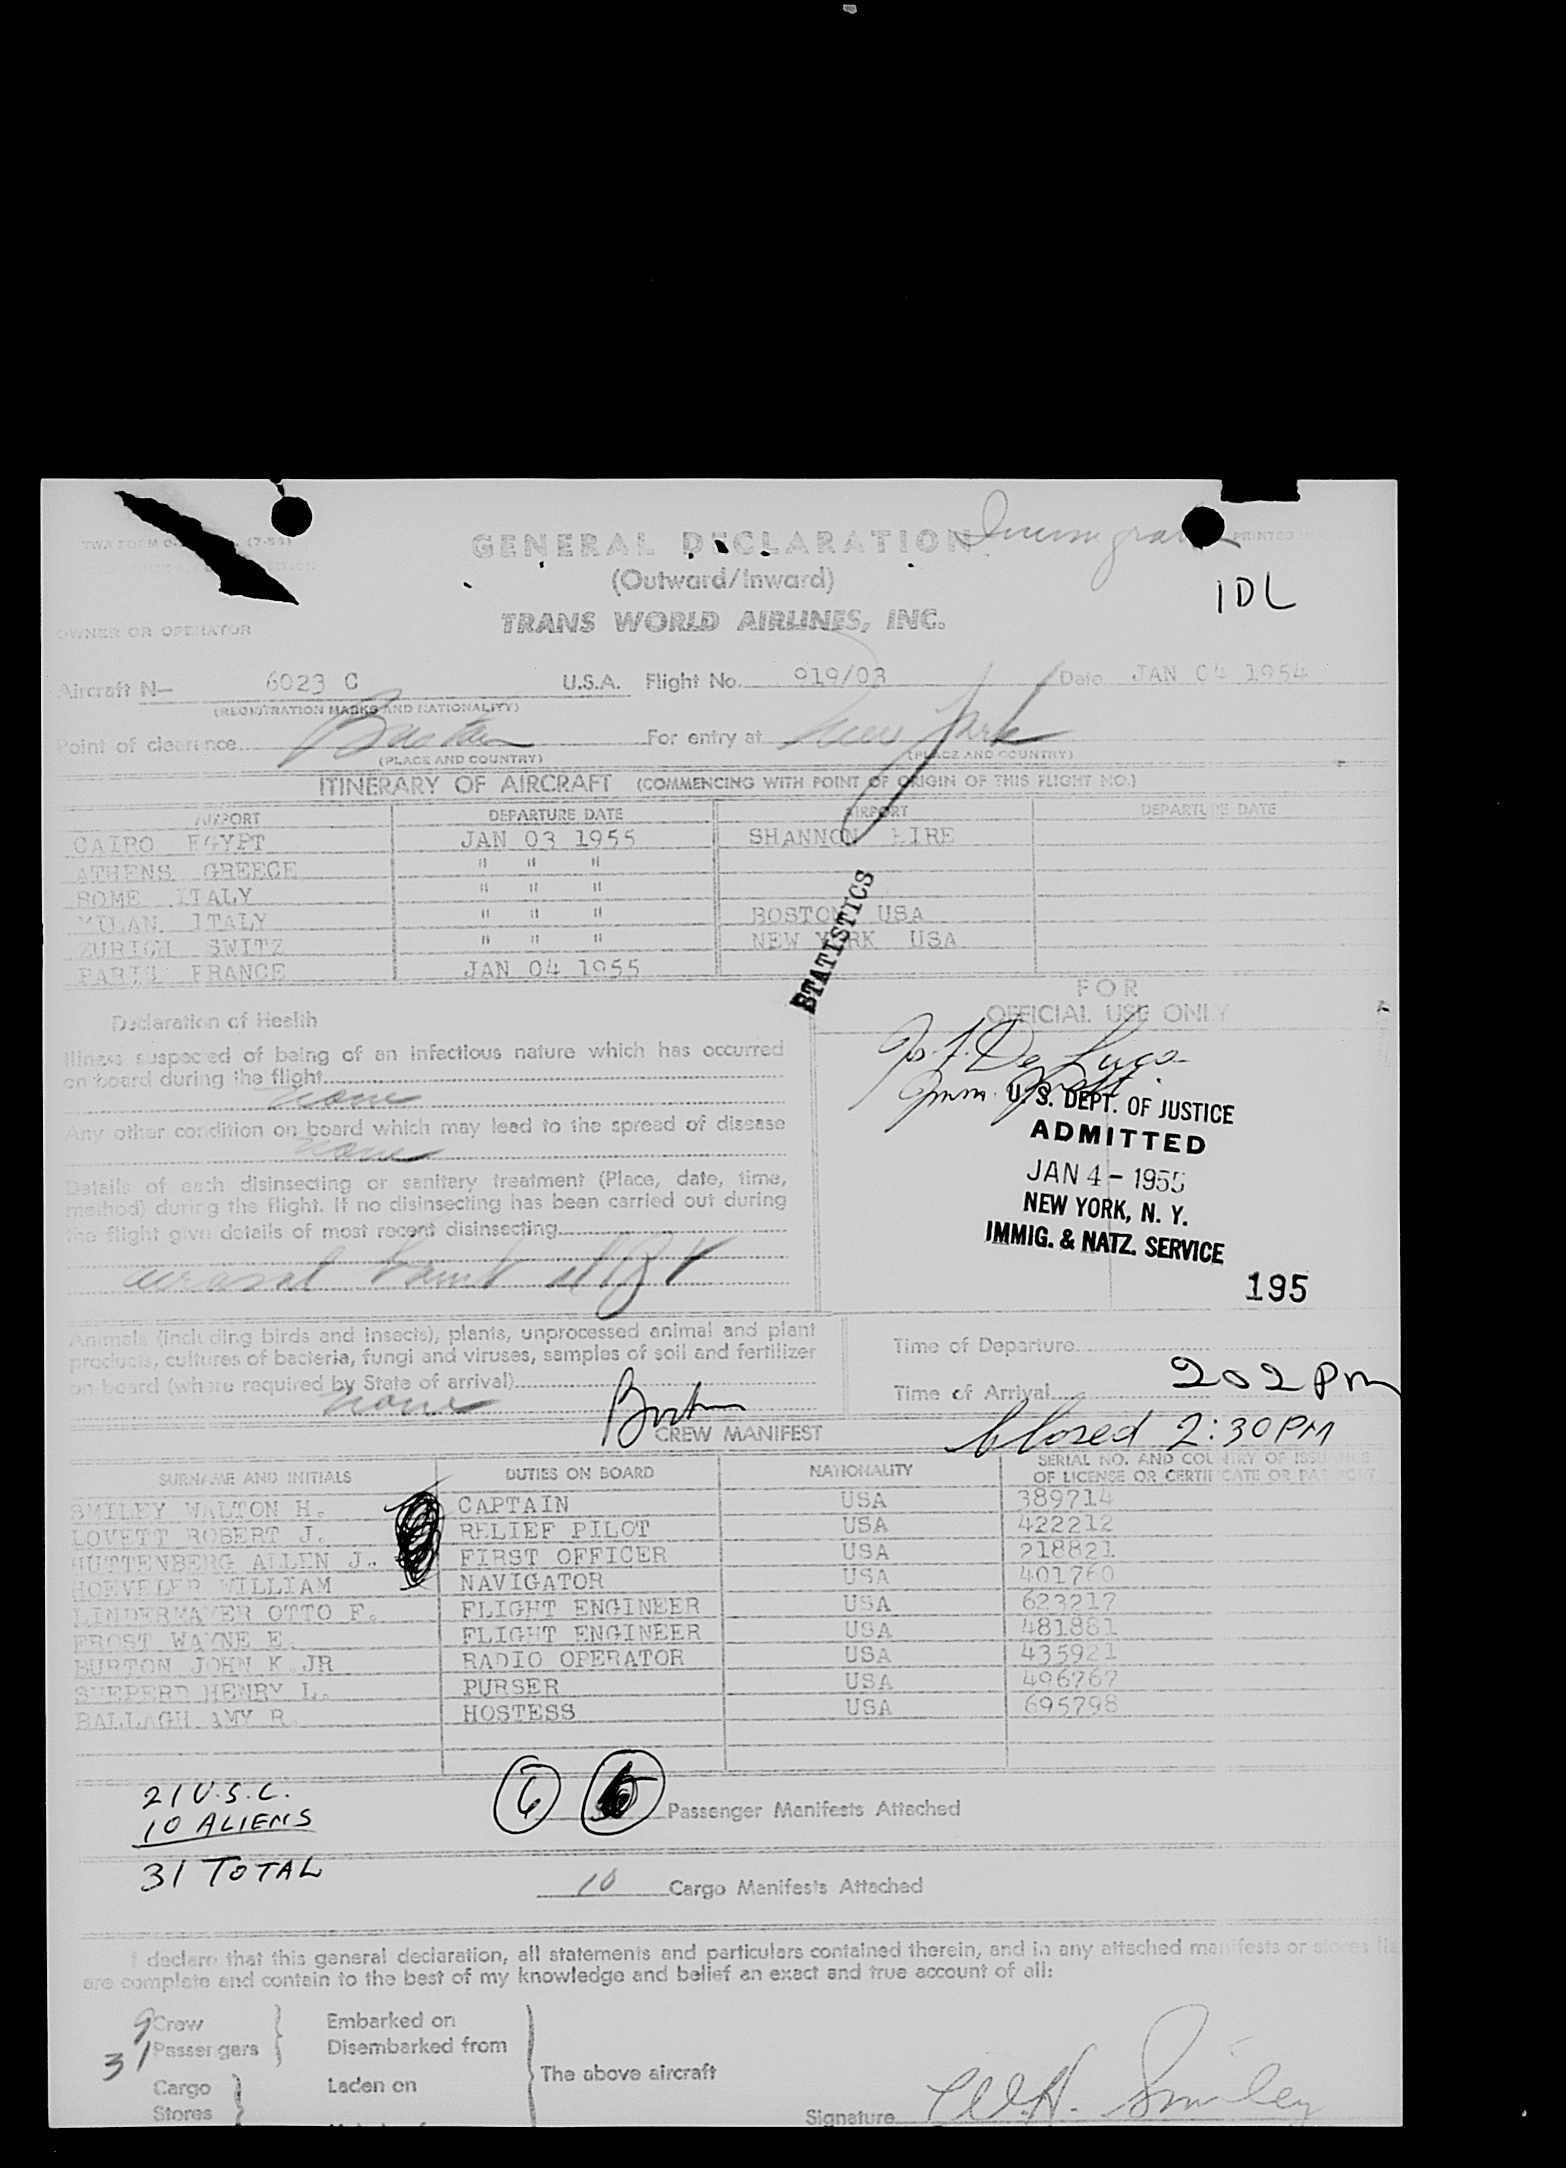 TWA FORM (7-51)
GENERAL DECLARATION
PRINTED
(Outward/Inward)
IDL
TRANS WORLD AIRLINES, INC.
OWNER OR OPERATOR
Aircraft N— 6023 C U.S.A. Flight No. 919/03 Date JAN 04 1954
(REGISTRATION MARKS AND NATIONALITY)
Point of clearance Boston For entry at New York
(PLACE AND COUNTRY) (PLACE AND COUNTRY)
ITINERARY OF AIRCRAFT (COMMENCING WITH POINT OF ORIGIN OF THIS FLIGHT NO.)
AIRPORT DEPARTURE DATE AIRPORT DEPARTURE DATE
CAIRO EGYPT JAN 03 1955 SHANNON EIRE
ATHENS GREECE " " "
ROME ITALY " " "
MILAN ITALY " " " BOSTON USA
ZURICH SWITZ " " " NEW YORK USA
PARIS FRANCE JAN 04 1955
STATISTICS
FOR
OFFICIAL USE ONLY
Declaration of Health
Illness suspected of being of an infectious nature which has occurred
on board during the flight
none
Any other condition on board which may lead to the spread of disease
none
Details of each disinsecting or sanitary treatment (Place, date, time,
method) during the flight. If no disinsecting has been carried out during
the flight give details of most recent disinsecting
Jos. F. De Luca
Imm.
U.S. DEPT. OF JUSTICE
ADMITTED
JAN 4 - 1955
NEW YORK, N. Y.
IMMIG. & NATZ. SERVICE
195
Animals (including birds and insects), plants, unprocessed animal and plant
products, cultures of bacteria, fungi and viruses, samples of soil and fertilizer
on board (where required by State of arrival)
none
Time of Departure
Time of Arrival 202 pm
Boston
CREW MANIFEST
Closed 2:30 PM
SURNAME AND INITIALS DUTIES ON BOARD NATIONALITY SERIAL NO. AND COUNTRY OF ISSUANCE
OF LICENSE OR CERTIFICATE OR PASSPORT
SMILEY WALTON H. CAPTAIN USA 389714
LOVETT ROBERT J. RELIEF PILOT USA 422212
HUTTENBERG ALLEN J. FIRST OFFICER USA 218821
HOEVELER WILLIAM NAVIGATOR USA 401760
LINDERMAYER OTTO F. FLIGHT ENGINEER USA 623217
FROST WAYNE E. FLIGHT ENGINEER USA 481881
BURTON JOHN K JR RADIO OPERATOR USA 435921
SHEPERD HENRY L. PURSER USA 496767
BALLAGH AMY R. HOSTESS USA 695798
21 U.S.C.
10 ALIENS
31 TOTAL
6 Passenger Manifests Attached
10 Cargo Manifests Attached
I declare that this general declaration, all statements and particulars contained therein, and in any attached manifests or stores
are complete and contain to the best of my knowledge and belief an exact and true account of all:
9 Crew Embarked on
31 Passengers Disembarked from
The above aircraft
Cargo Laden on
Stores
Signature W.H. Smiley